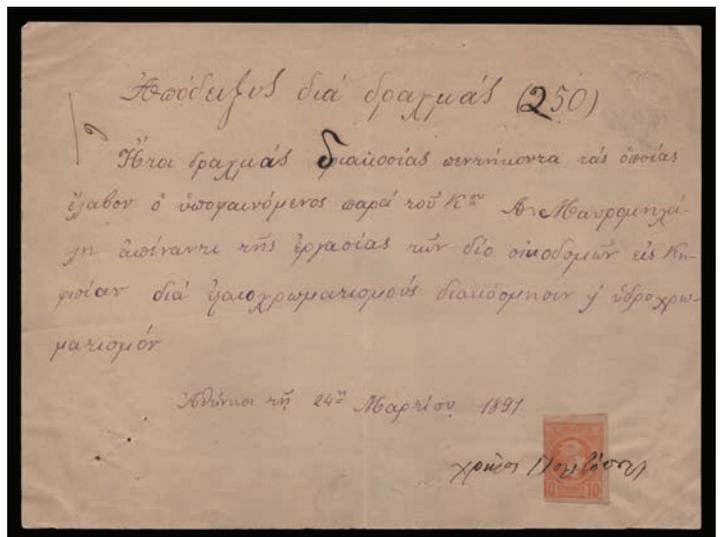 Ἀπόδειξυς διά δραχμάς (250)
Ἤτοι δραχμάς διακοσίας πεντήκοντα τάς ὁποίας
ἔλαβον ὁ ὑποφαινόμενος παρά τοῦ Κου Μαυρομηχά-
λη ἀπέναντι τῆς ἐργασίας τῶν δίο οἰκοδομῶν εἰς Κη-
φισίαν διά ἐλαιοχρωματισμούς διακόσμησιν ὑδροχρω-
ματισμόν
Ἀθῆναι τῇ 24ῃ Μαρτίου 1891
10